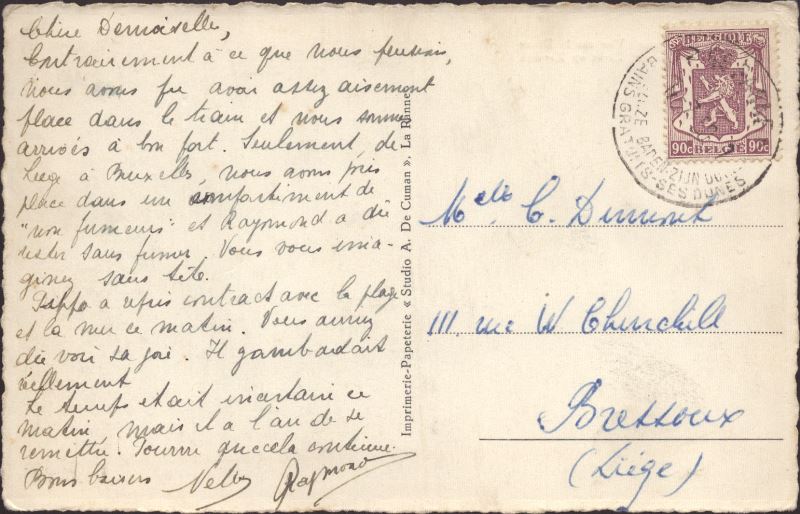 Chère Demoiselle,
Contrairement à ce que nous pensions,
nous avons pu avoir assez aisement
place dans le train et nous sommes
arrivés à bon port. Seulement, de
Liège à Bruxelles, nous avons pris
place dans un compartiment de
"non fumeurs" et Raymond a dû
rester sans fumer. Vous vous ima-
ginez sans tête.
a repris contract avec la plage
et la mer ce matin. Vous auriez
dû voir sa joie. Il gambadait
réellement
Le temps etait incertain ce
matin, mais il a l'air de se
remettre. Pourvu que cela continue.
Bons baisers Nelly Raymond
Imprimerie-Papeterie « Studio A. De Cuman », La Panne
BELGIQUE
90c BELGIE 90c
BADEN ZIJN
BAINS GRATUITS - SES DUNES
Melle C. Dumont
111 rue W Churchill
Bressoux
(Liège)